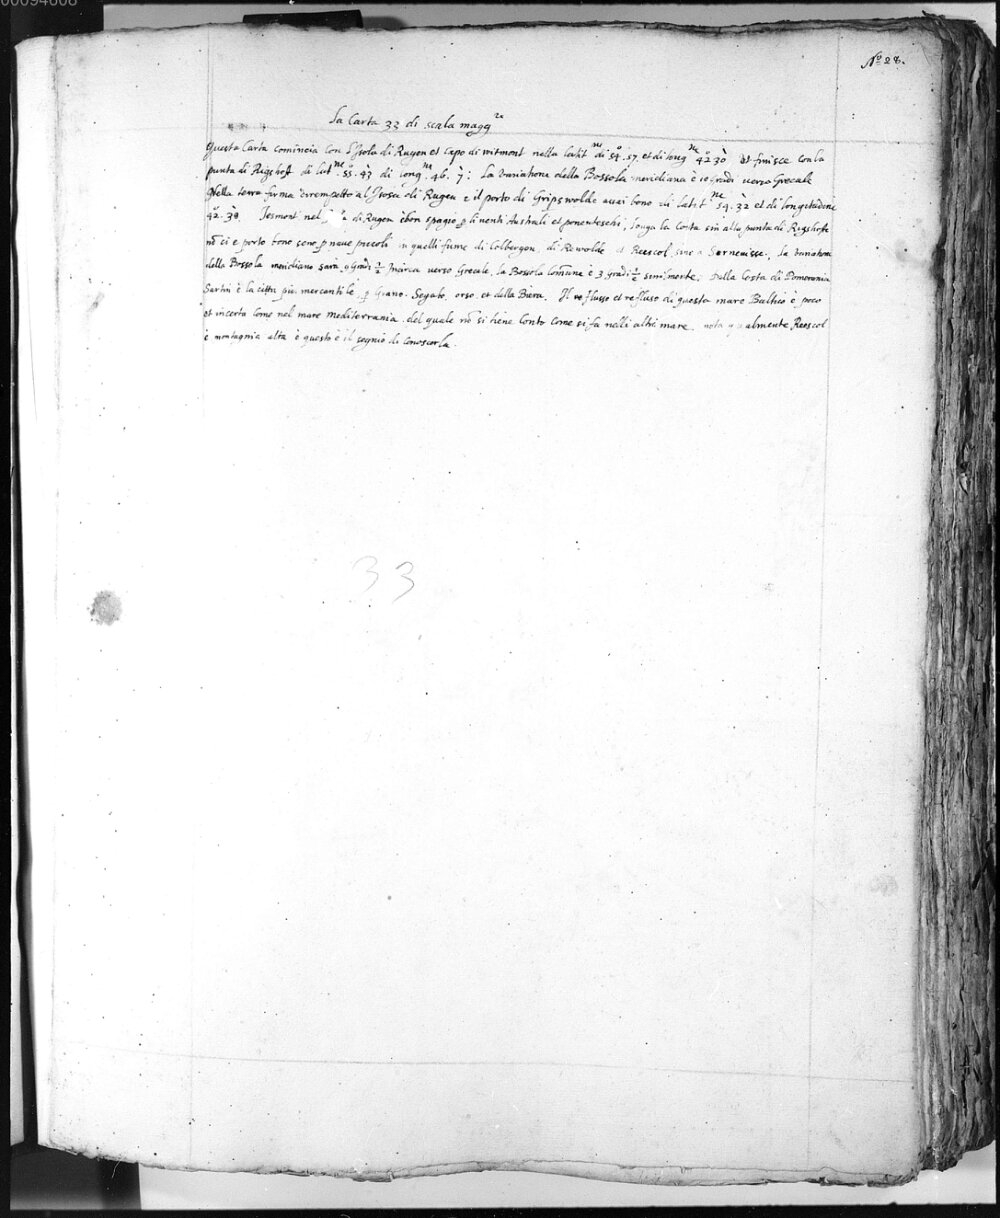 00094608
Nº 28.
La Carta 33 di scala magg.re
Questa Carta comincia con l'Isola di Rugen et Capo di witmont nella latit.ne di 54. 57. et di long.ne 42 30 et finisce con la
punta di Rigshoft di lat.ne 55. 43 di long.ne 46. 7: La variatione della Bossola meridiana è 10 Gradi verso Grecale
Nella terra firma dirempetto al Isosa di Rugen e il porto di Gripswolde assai bono di latit.ne 54. 32 et di longitudine
42. 38. Jesmont nel di Rugen è bon spagio p li venti Australi et ponenteschi, longa la Costa sin alla punta di Rigshofte
nō ci e porto bono seno p nave piccoli in quelli fiume di Colbergen di Rewolde et Reescol sino a Serneuisse. la variatione
della Bossola meridiana sarà 9 Gradi ½ in circa verso Grecale, la Bossola comune è 3 gradi ½ similmente. Nella Costa di Pomerania
Sartin è la citta piu mercantile p Grano. Segato, orso, et della Biera. Il flusso et refluso di questo mare Baltico è poco
et incerta come nel mare mediterrania. del quale nō si tiene conto come si fa nelli altri mare. nota qualmente Reescol
è montagnia alta è questo è il segnio di conoscerla.
33